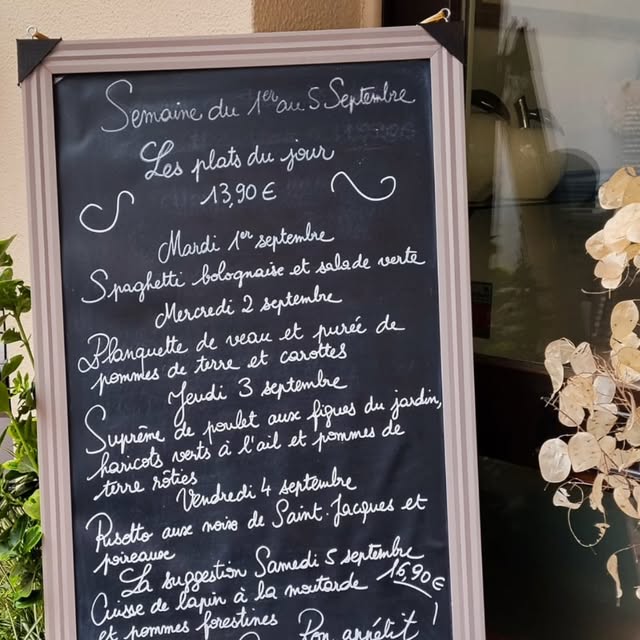 Semaine du 1er au 5 Septembre
Les plats du jour
13,90 €
Mardi 1er septembre
Spaghetti bolognaise et salade verte
Mercredi 2 septembre
Blanquette de veau et purée de
pommes de terre et carottes
Jeudi 3 septembre
Suprême de poulet aux figues du jardin,
haricots verts à l'ail et pommes de
terre rôties
Vendredi 4 septembre
Risotto aux noix de Saint-Jacques et
poireaux
La suggestion Samedi 5 septembre
Cuisse de lapin à la moutarde 16,90€
et pommes forestines
Bon appétit !